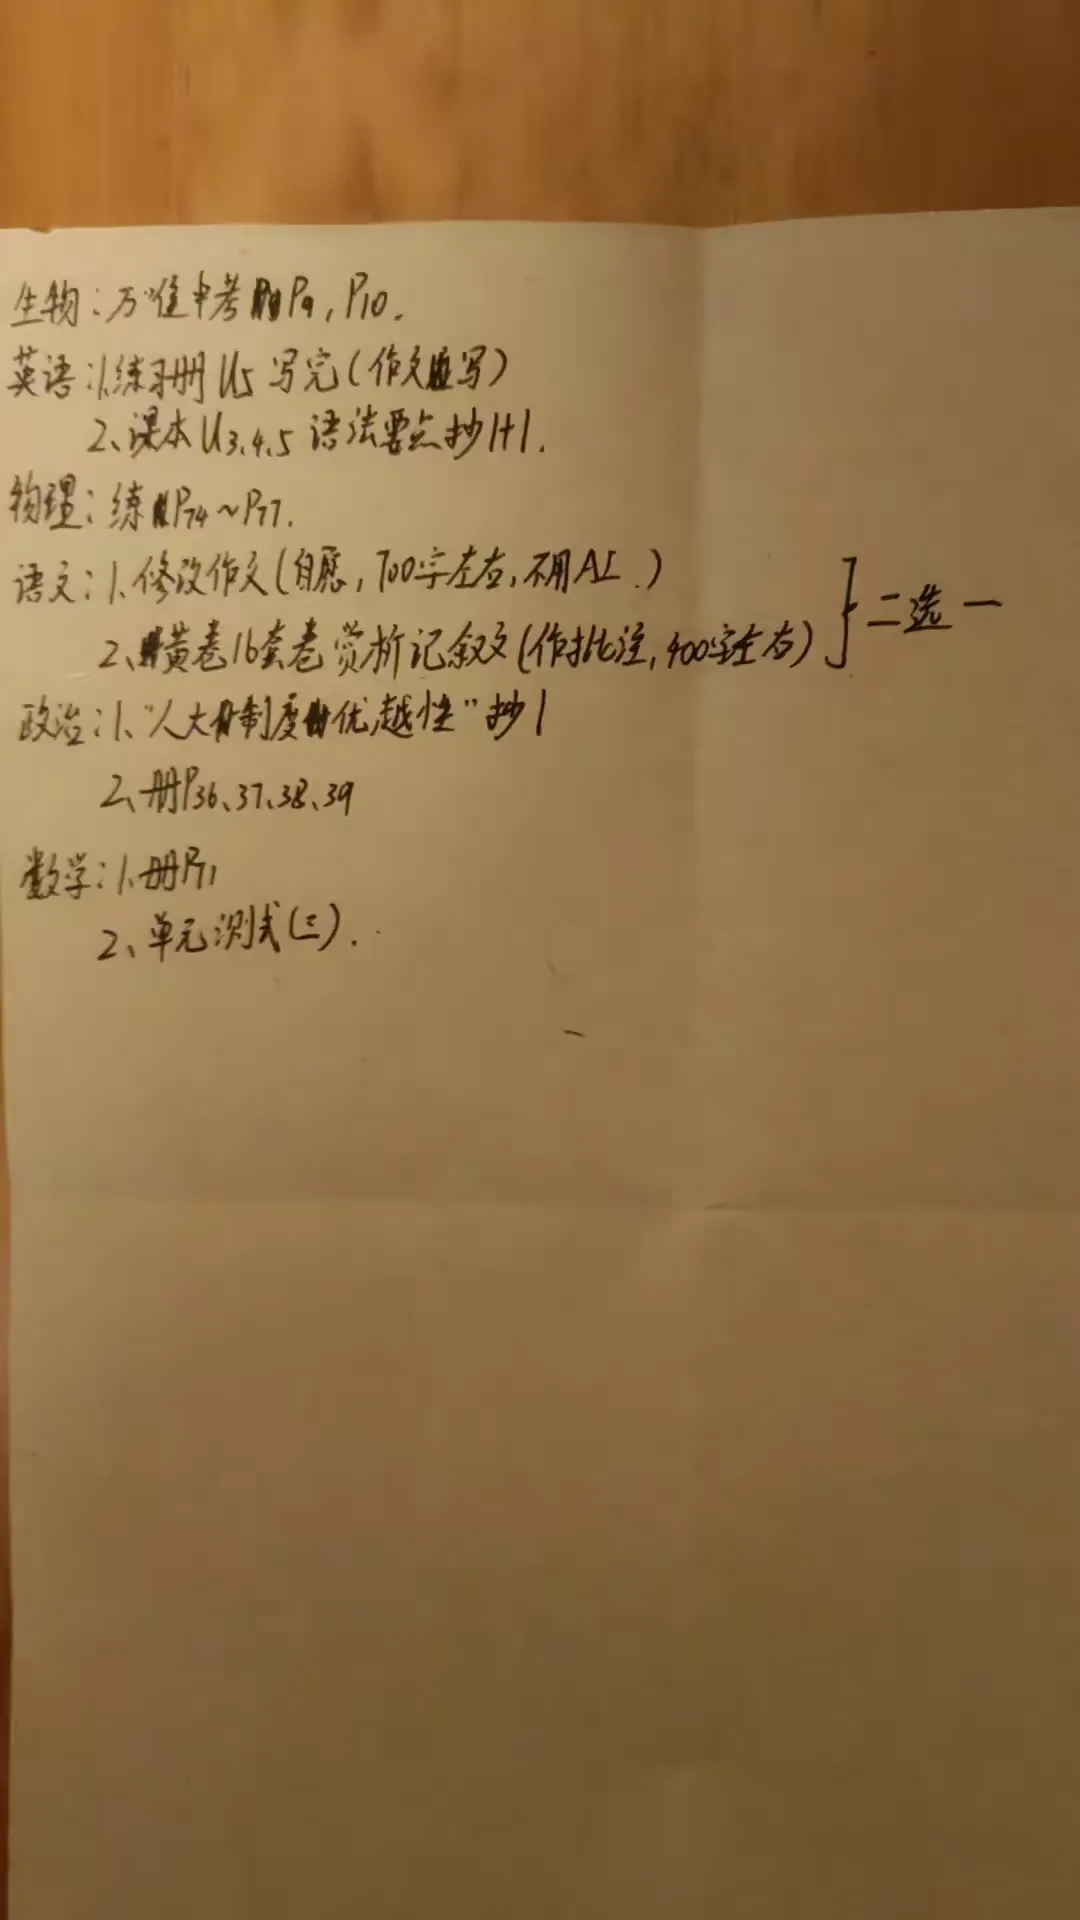 生物：万唯中考P9，P10.
英语：1、练习册U5写完（作文写）
2、课本U3、4、5语法要点抄1+1.
物理：练P74～P77.
语文：1、修改作文（自愿，700字左右，不用AI.）
2、黄卷16套卷赏析记叙文（作批注，400字左右）
二选一
政治：1、“人大制度优越性”抄1
2、册P36、37、38、39
数学：1、册P71
2、单元测试（三）.